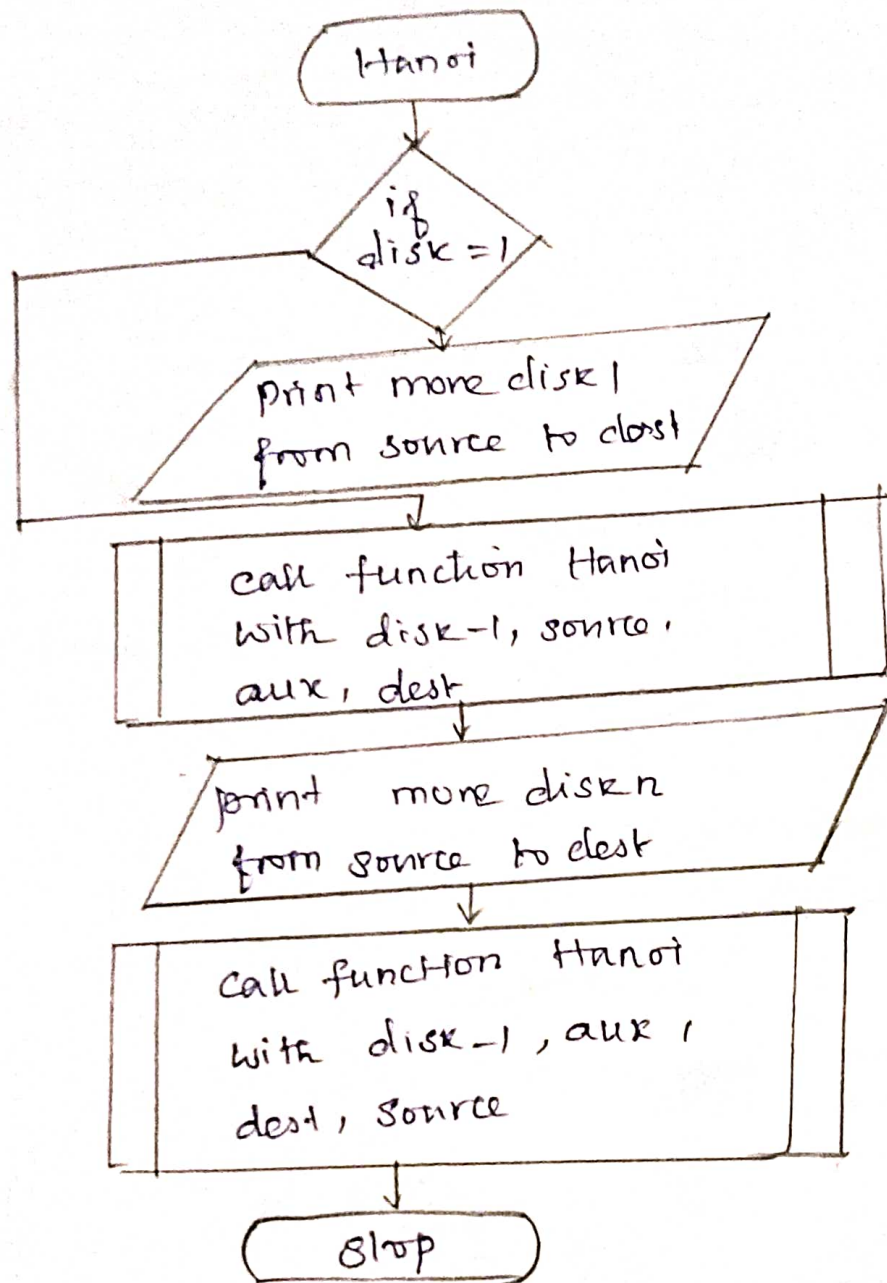 Hanoi
if
disk = 1
print more disk 1
from source to dest
call function Hanoi
with disk-1, source,
aux, dest
print more disk n
from source to dest
call function Hanoi
with disk-1, aux,
dest, source
Stop